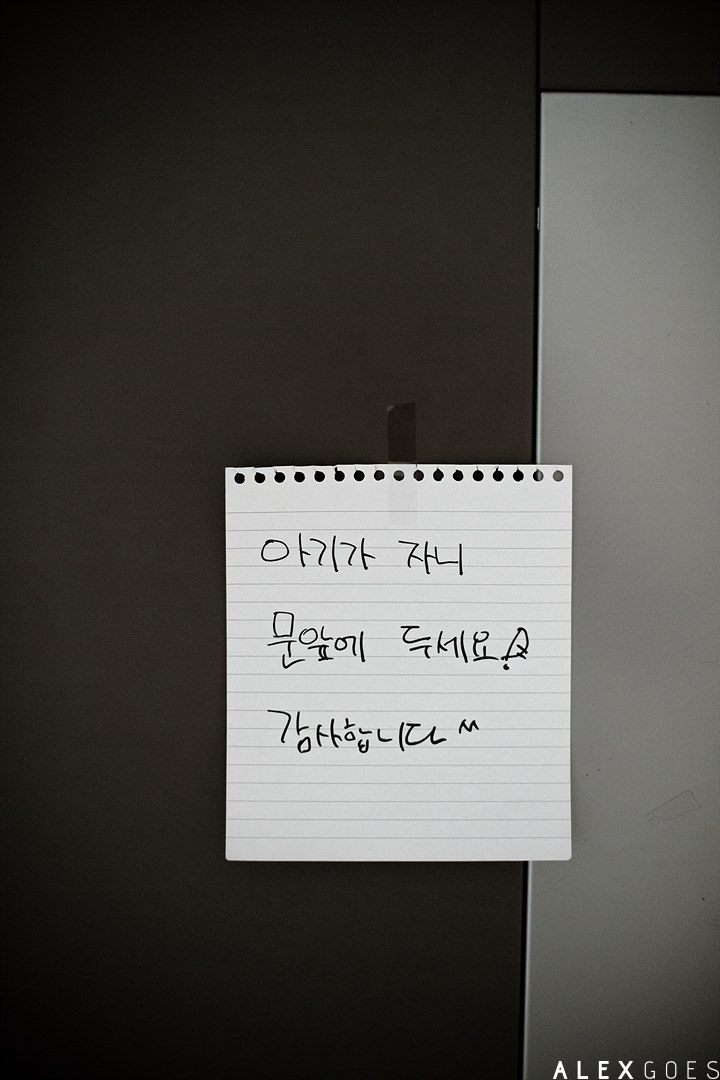 아기가 자니
문앞에 두세요!
감사합니다 ^^
ALEXGOES